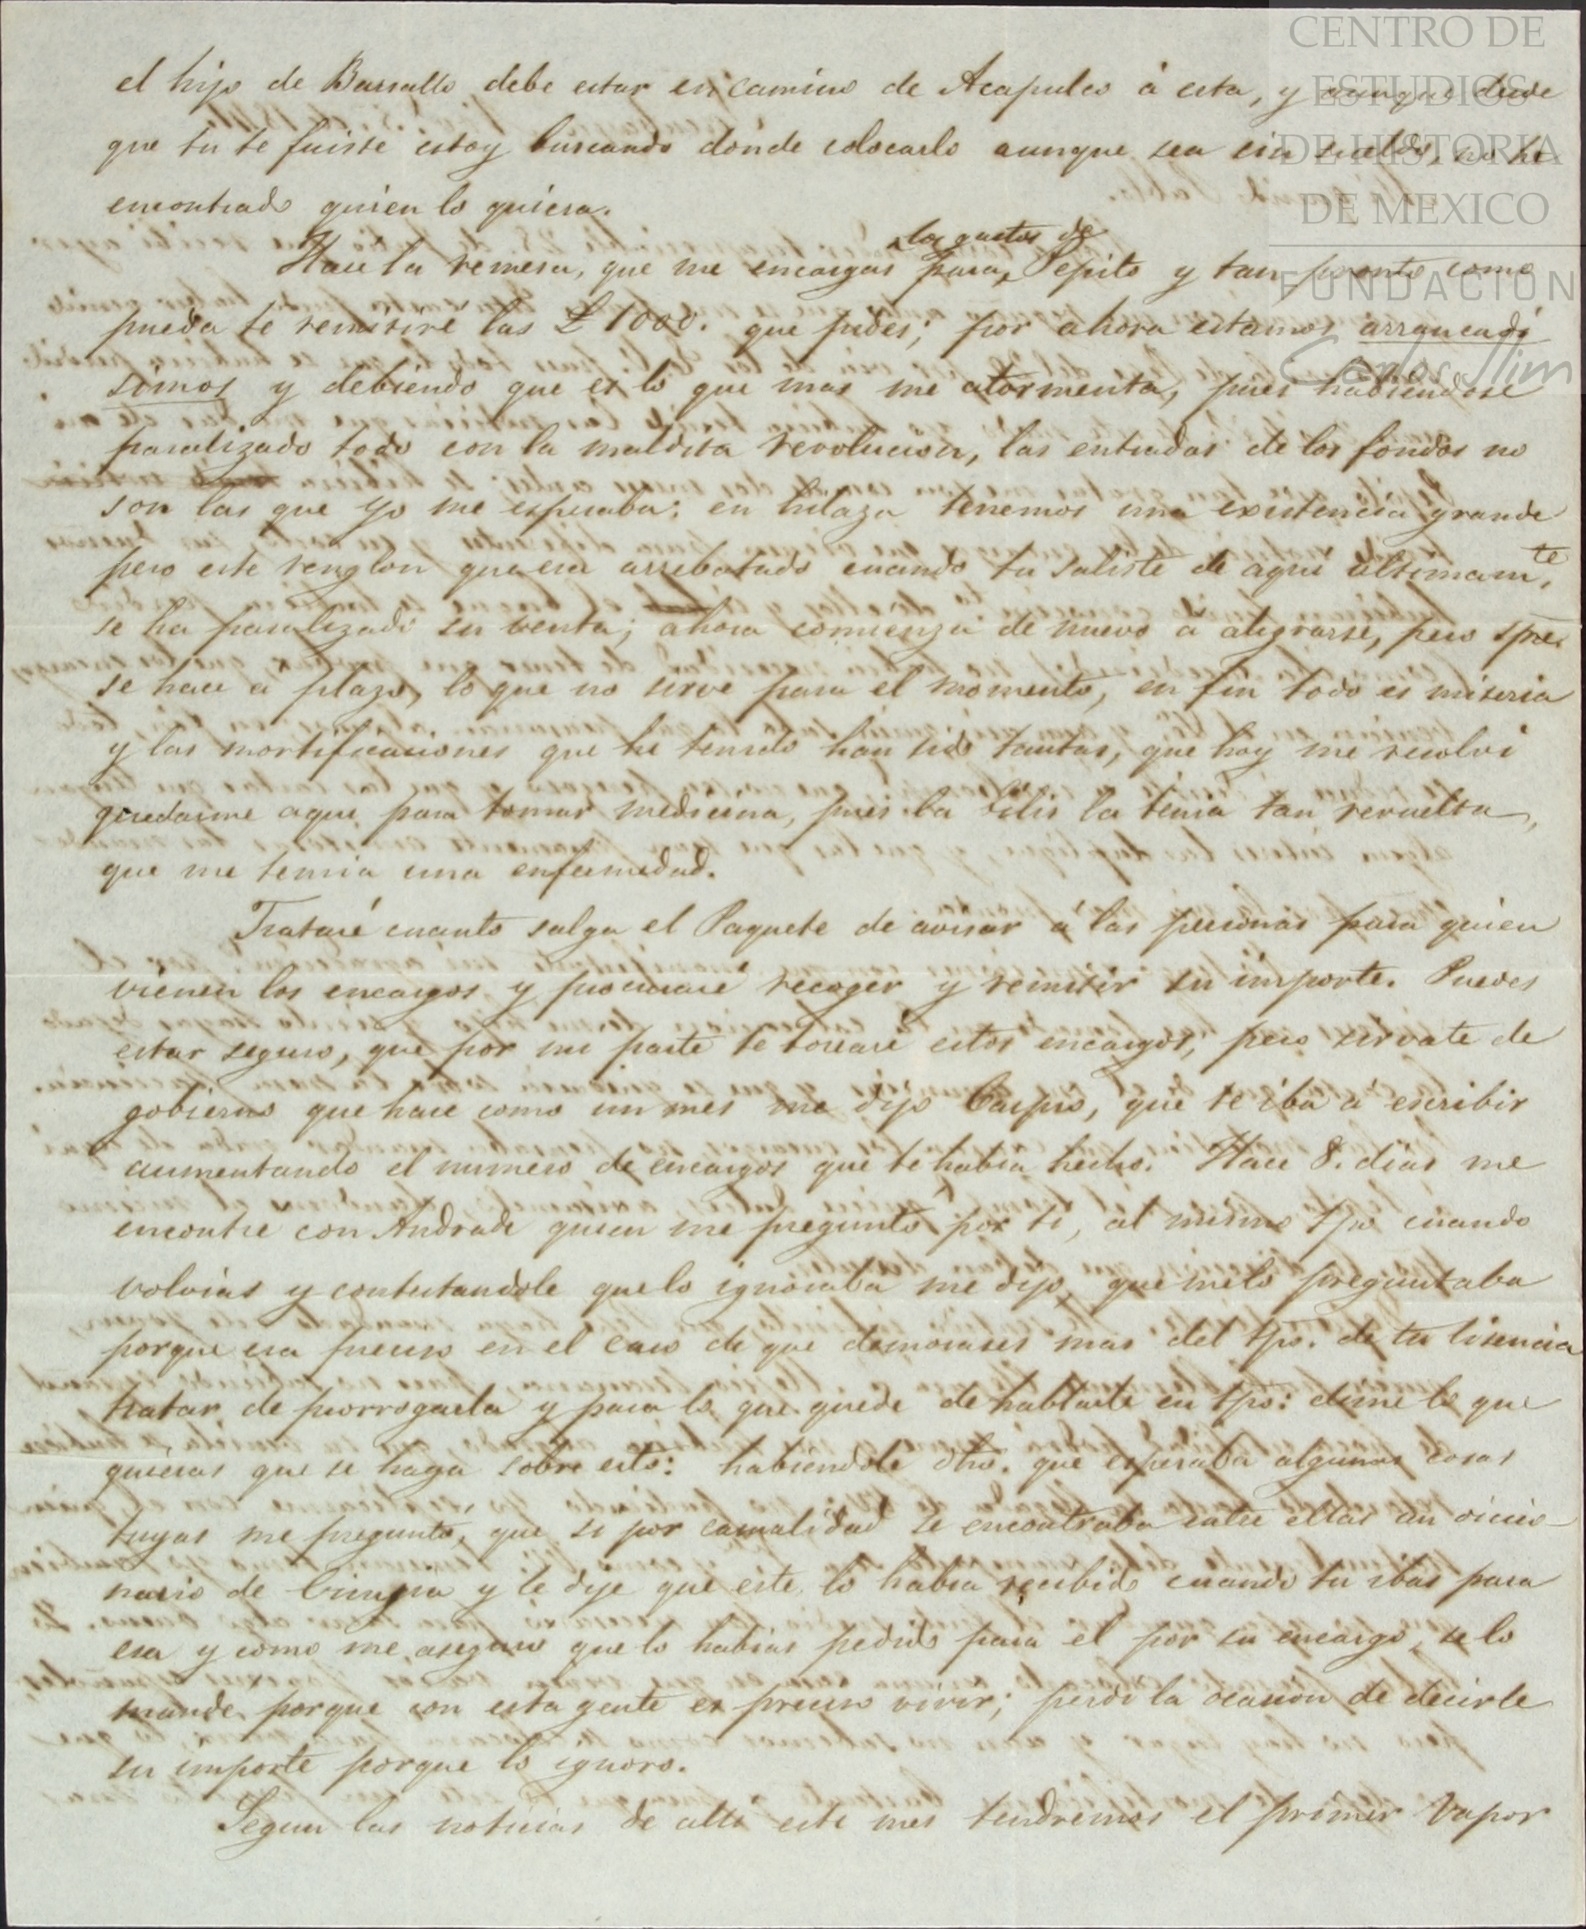 CENTRO DE
ESTUDIOS
DE HISTORIA
DE MEXICO
FUNDACION
Carlos Slim
el hijo de Barrallo debe estar en camino de Acapulco á esta, y aunque desde
que tu te fuiste estoy buscando donde colocarlo aunque sea sin sueldo, no he
encontrado quien lo quiera.
Haré la remesa, que me encargas para los gastos de Pepito y tan pronto como
pueda te remitiré las £ 1000. que pides; por ahora estamos arrancadi
simos y debiendo que es lo que mas me atormenta, pues habiendose
paralizado todo con la maldita revolucion, las entradas de los fondos no
son las que yo me esperaba: en hilaza tenemos una existencia grande
pero este renglon que era arrebatado cuando tu saliste de aqui ultimamte,
se ha paralizado su venta; ahora comienza de nuevo á alegrarse, pero spre.
se hace a plazo, lo que no sirve para el momento, en fin todo es miseria
y las mortificaciones que he tenido han sido tantas, que hoy me resolvi
quedarme aqui para tomar medicina, pues la bilis la tenia tan revuelta,
que me temia una enfermedad.
Trataré cuanto salga el Paquete de avisar á las personas para quien
vienen los encargos y procuraré recoger y remitir su importe. Puedes
estar seguro, que por mi parte te torearé estos encargos; pero sirvate de
gobierno que hace como un mes me dijo Carpio, que te iba á escribir
aumentando el numero de encargos que te habia hecho. Hace 8. dias me
encontre con Andrade quien me preguntó por ti, al mismo tpo cuando
volvias y contestandole que lo ignoraba me dijo, que me lo preguntaba
porque era preciso en el caso de que demorases mas del tpo. de tu lisencia
tratar de prorrogarla y para lo que quede de hablarte en tpo: dime lo que
quieras que se haga sobre esto: habiendole dho. que esperaba algunas cosas
tuyas me preguntó, que si por casualidad se encontraba entre ellas un diccio-
nario de Cirugia y le dije que este lo habia recibido cuando tu ibas para
esa y como me aseguro que lo habias pedido para el por su encargo, se lo
mande porque con esta gente es preciso vivir; perdi la ocasion de decirle
su importe porque lo ignoro.
Segun las noticias de alli este mes tendremos el primer Vapor